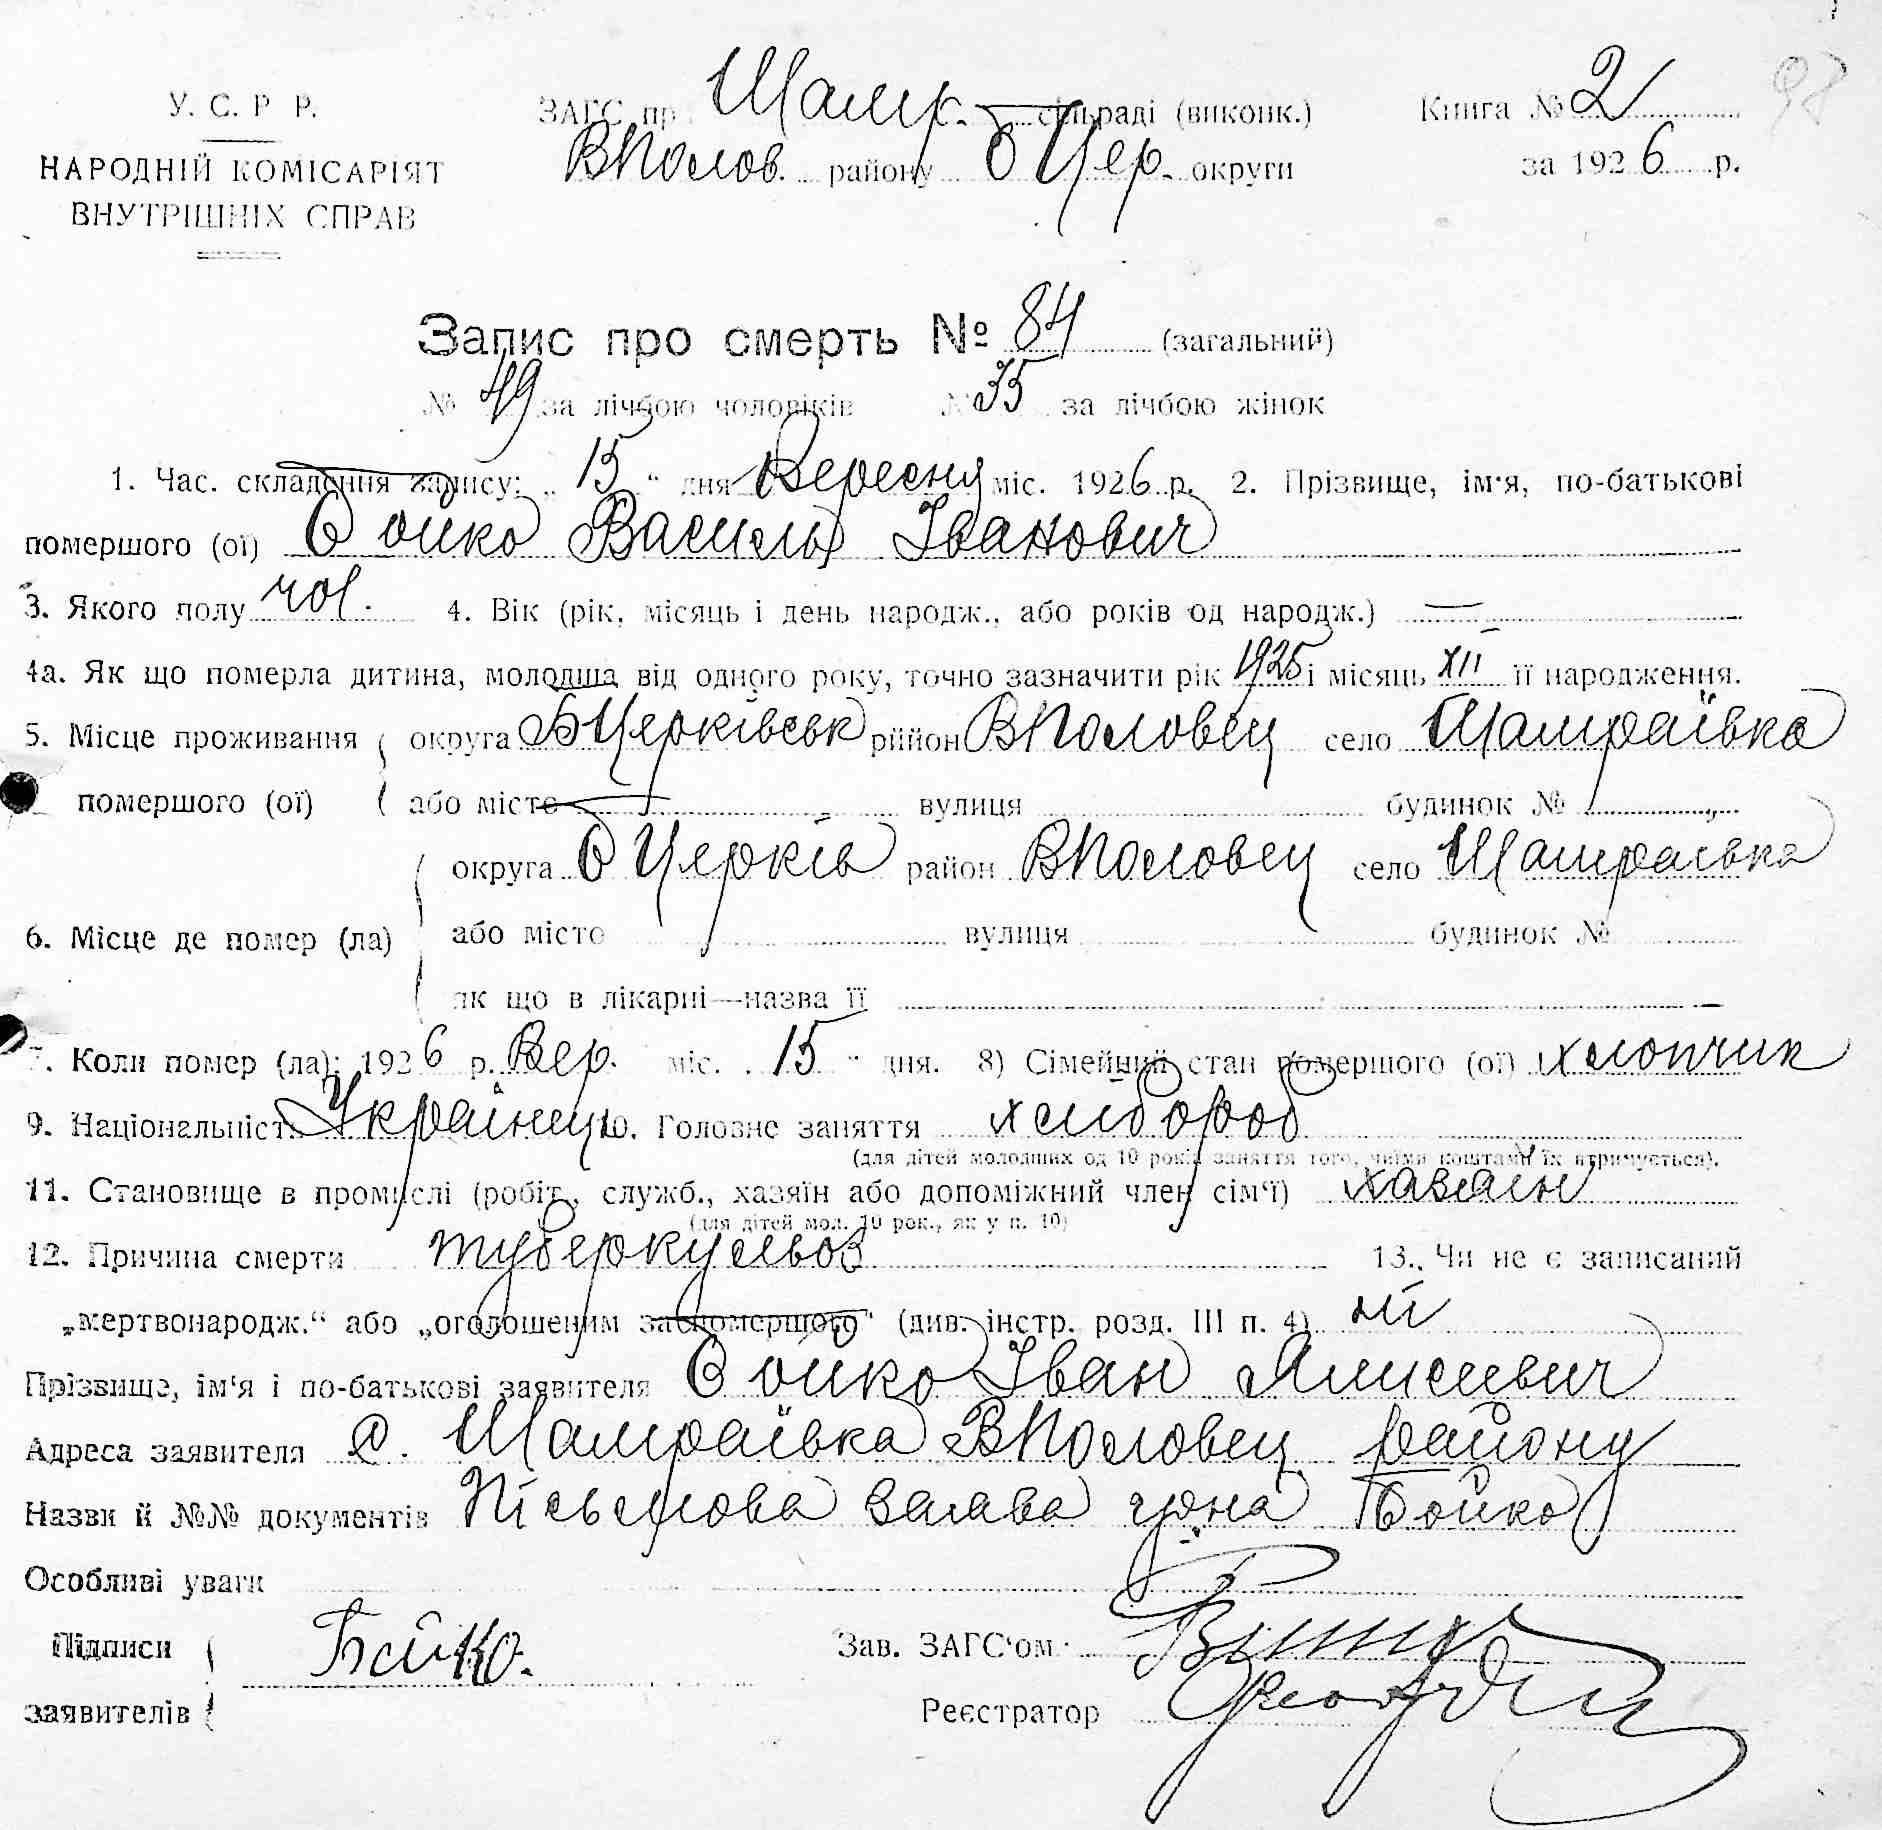 98
У. С. Р Р.
НАРОДНІЙ КОМІСАРІЯТ
ВНУТРІШНІХ СПРАВ
ЗАГС пр Шамр. сільраді (виконк.)
ВПолов. району БЦер. округи
Книга № 2
за 1926 р.
Запис про смерть № 84 (загальний)
№ 49 за лічбою чоловіків № 35 за лічбою жінок
1. Час. складення запису: „ 15 “ дня Вересня міс. 1926 р. 2. Прізвище, ім'я, по-батькові
помершого (ої) Бойко Василь Іванович
3. Якого полу чол. 4. Вік (рік, місяць і день народж., або років од народж.) —
4а. Як що померла дитина, молодша від одного року, точно зазначити рік 1925 і місяць XII її народження.
5. Місце проживання округа БЦерківськ район ВПоловец село Шамраївка
помершого (ої) або місто вулиця будинок №
округа БЦерків район ВПоловец село Шамраївка
6. Місце де помер (ла) або місто вулиця будинок №
як що в лікарні—назва її
7. Коли помер (ла): 1926 р. Вер. міс. 15 “ дня. 8) Сімейний стан помершого (ої) хлопчик
9. Національність Українец 10. Головне заняття хлибороб
(для дітей молодших од 10 років заняття того, чиїми коштами їх втримується).
11. Становище в промислі (робіт., служб., хазяїн або допоміжний член сім'ї) хазяїн
(для дітей мол. 10 рок., як у п. 10)
12. Причина смерти туберкульоз 13. Чи не є записаний
„мертвонародж.“ або „оголошеним за помершого“ (див. інстр. розд. III п. 4) ні
Прізвище, ім'я і по-батькові заявителя Бойко Іван
Адреса заявителя с. Шамраївка ВПоловец району
Назви й №№ документів Пісьмова заява гр̅на Бойко
Особливі уваги
Підписи Бойко. Зав. ЗАГС'ом
заявителів Реєстратор